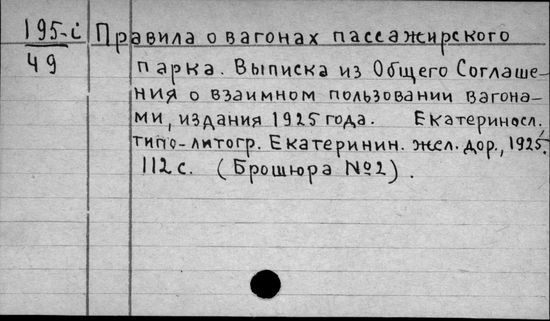 195-i
49
Правила о вагонах пассажирского
парка. Выписка из Общего Соглаше-
ния о взаимном пользовании вагона-
ми, издания 1925 года. Екатериносл.,
типо-литогр. Екатеринин. жел. дор., 1925.
112 с. (Брошюра №2).